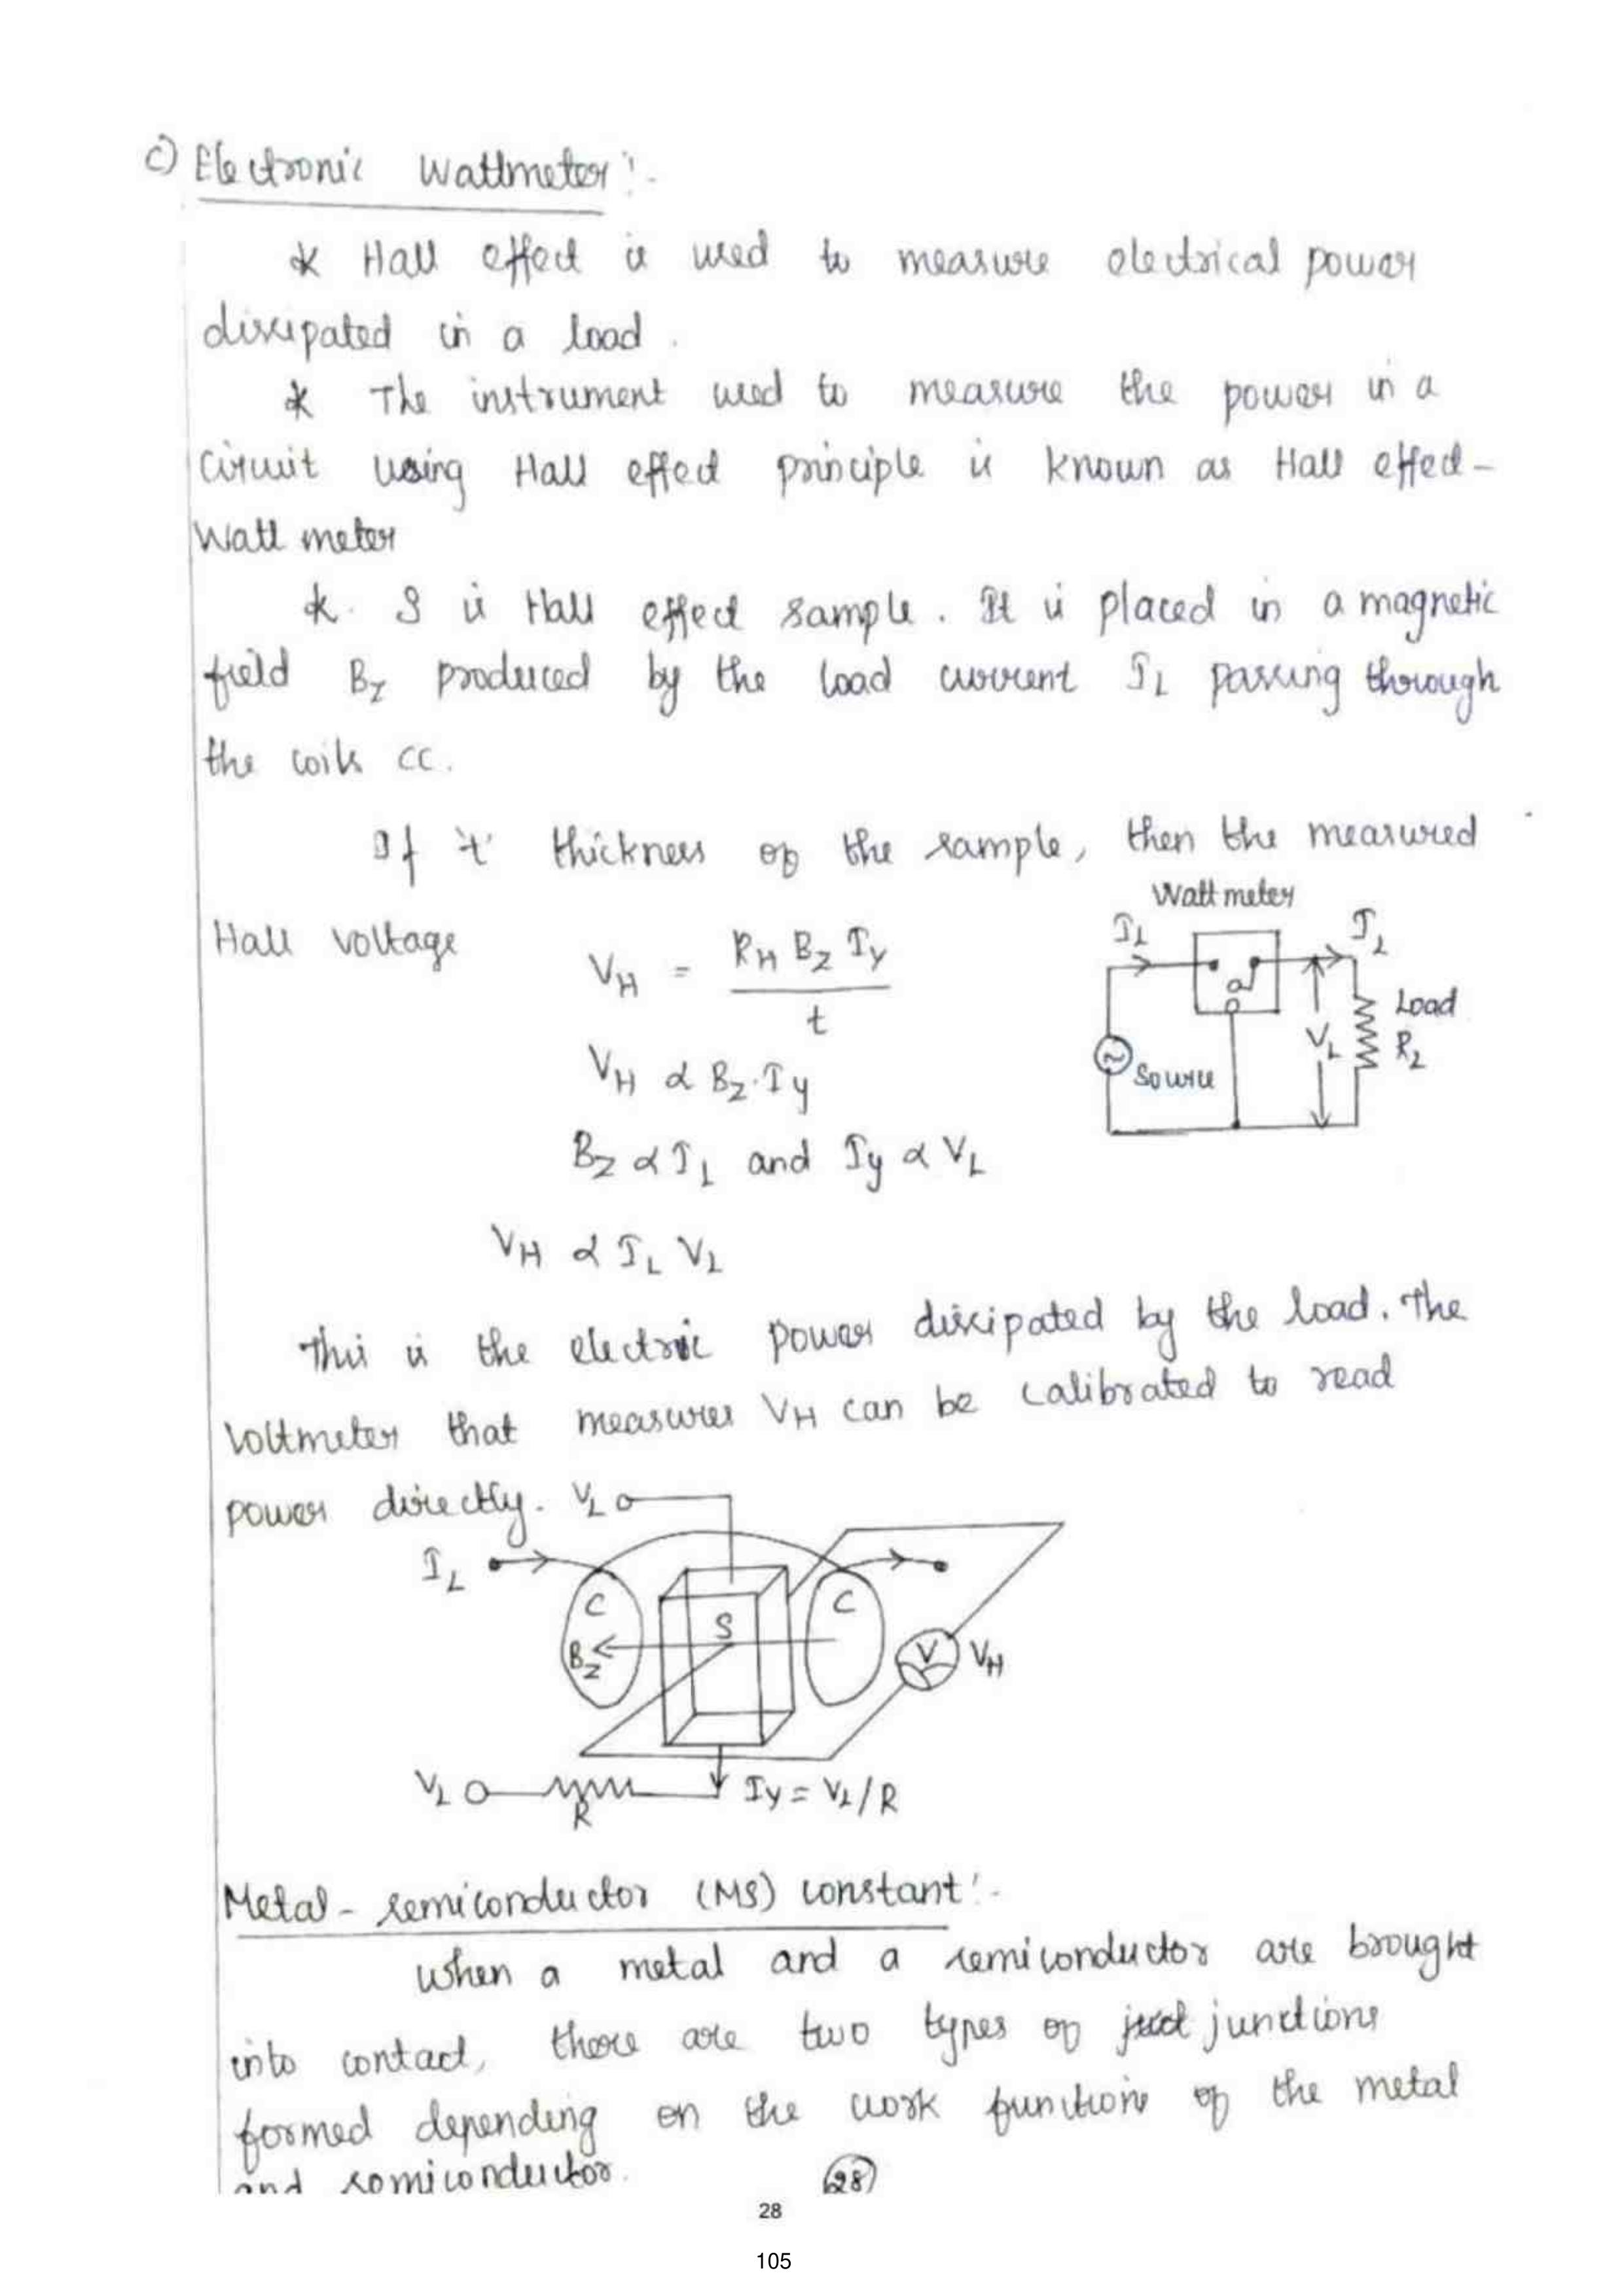 c) Electronic Wattmeter:-
* Hall effect is used to measure electrical power
dissipated in a load.
* The instrument used to measure the power in a
circuit using Hall effect principle is known as Hall effect-
Watt meter
* S is Hall effect sample. It is placed in a magnetic
field Bz produced by the load current IL passing through
the coils CC.
If 't' thickness of the sample, then the measured
Hall voltage
VH = RH Bz Iy / t
VH α Bz.Iy
Bz α IL and Iy α VL
VH α IL VL
Watt meter
IL
IL
VL
Load
RL
Source
This is the electric power dissipated by the load. The
voltmeter that measures VH can be calibrated to read
power directly.
VL
IL
C
S
C
Bz
V
VH
VL
R
Iy = VL/R
Metal - semiconductor (MS) constant:-
When a metal and a semiconductor are brought
into contact, there are two types of junctions
formed depending on the work function of the metal
and semiconductor.
28
28
105